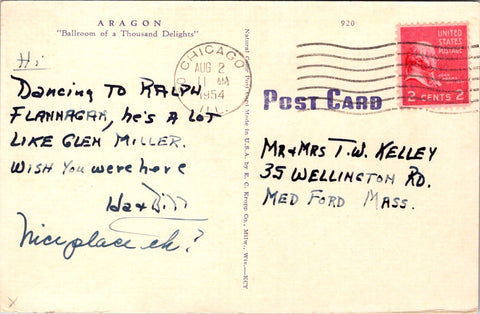 ARAGON
"Ballroom of a Thousand Delights"
920
Hi
Dancing TO RALPH
FLANNAGAN, he's A LOT
LIKE GLEN MILLER.
WISH You were here
Nice place eh?
CHICAGO
AUG 2
11 AM
1954
ILL.
Natural Color Post Card Made in U.S.A. by E. C. Kropp Co., Milw., Wis.—KCV
UNITED
STATES
POSTAGE
2 CENTS 2
POST CARD
MR & MRS T.W. KELLEY
35 WELLINGTON RD.
MED FORD MASS.